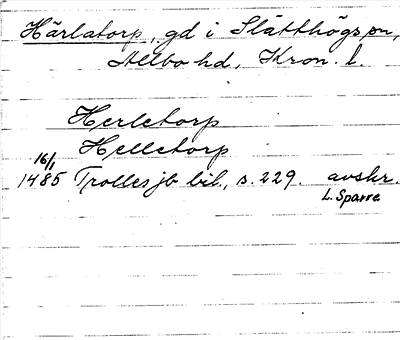 Härlatorp, gd i Slätthögs sn,
Allbo hd, Kron. l.
Herletorp
Helletorp
16/1
1485 Trolles jb bil., s. 229. avskr.
L. Sparre